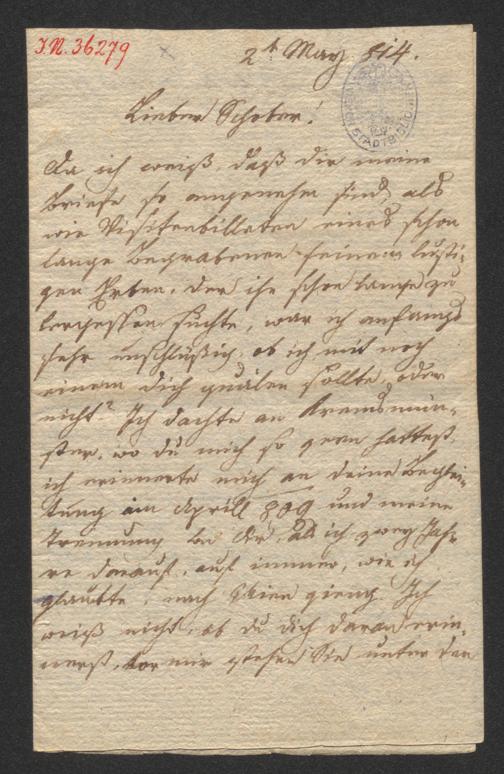 J.N. 36279
2t May 814.
STADTBIBL
Lieber Schober!
Da ich weiß, daß dir meine
Briefe so angenehm sind, als
wie Visitenbilleten eines schon
lange Begrabenen seinem lusti-
gen Erben, der ihn schon lange zu
vergessen suchte, war ich anfangs
sehr unschlüßig, ob ich mit noch
einem dich quälen sollte, oder
nicht? Ich dachte an Kremsmün-
ster, wo du mich so gern hattest,
ich erinnerte mich an deine Beglei-
tung im Aprill 809 und meine
Trennung bei dir, als ich zwey Jah-
re darauf, auf immer, wie ich
glaubte, nach Wien gieng. Ich
weiß nicht, ob du dich daran erin-
nerst, vor mir stehen Sie unter den